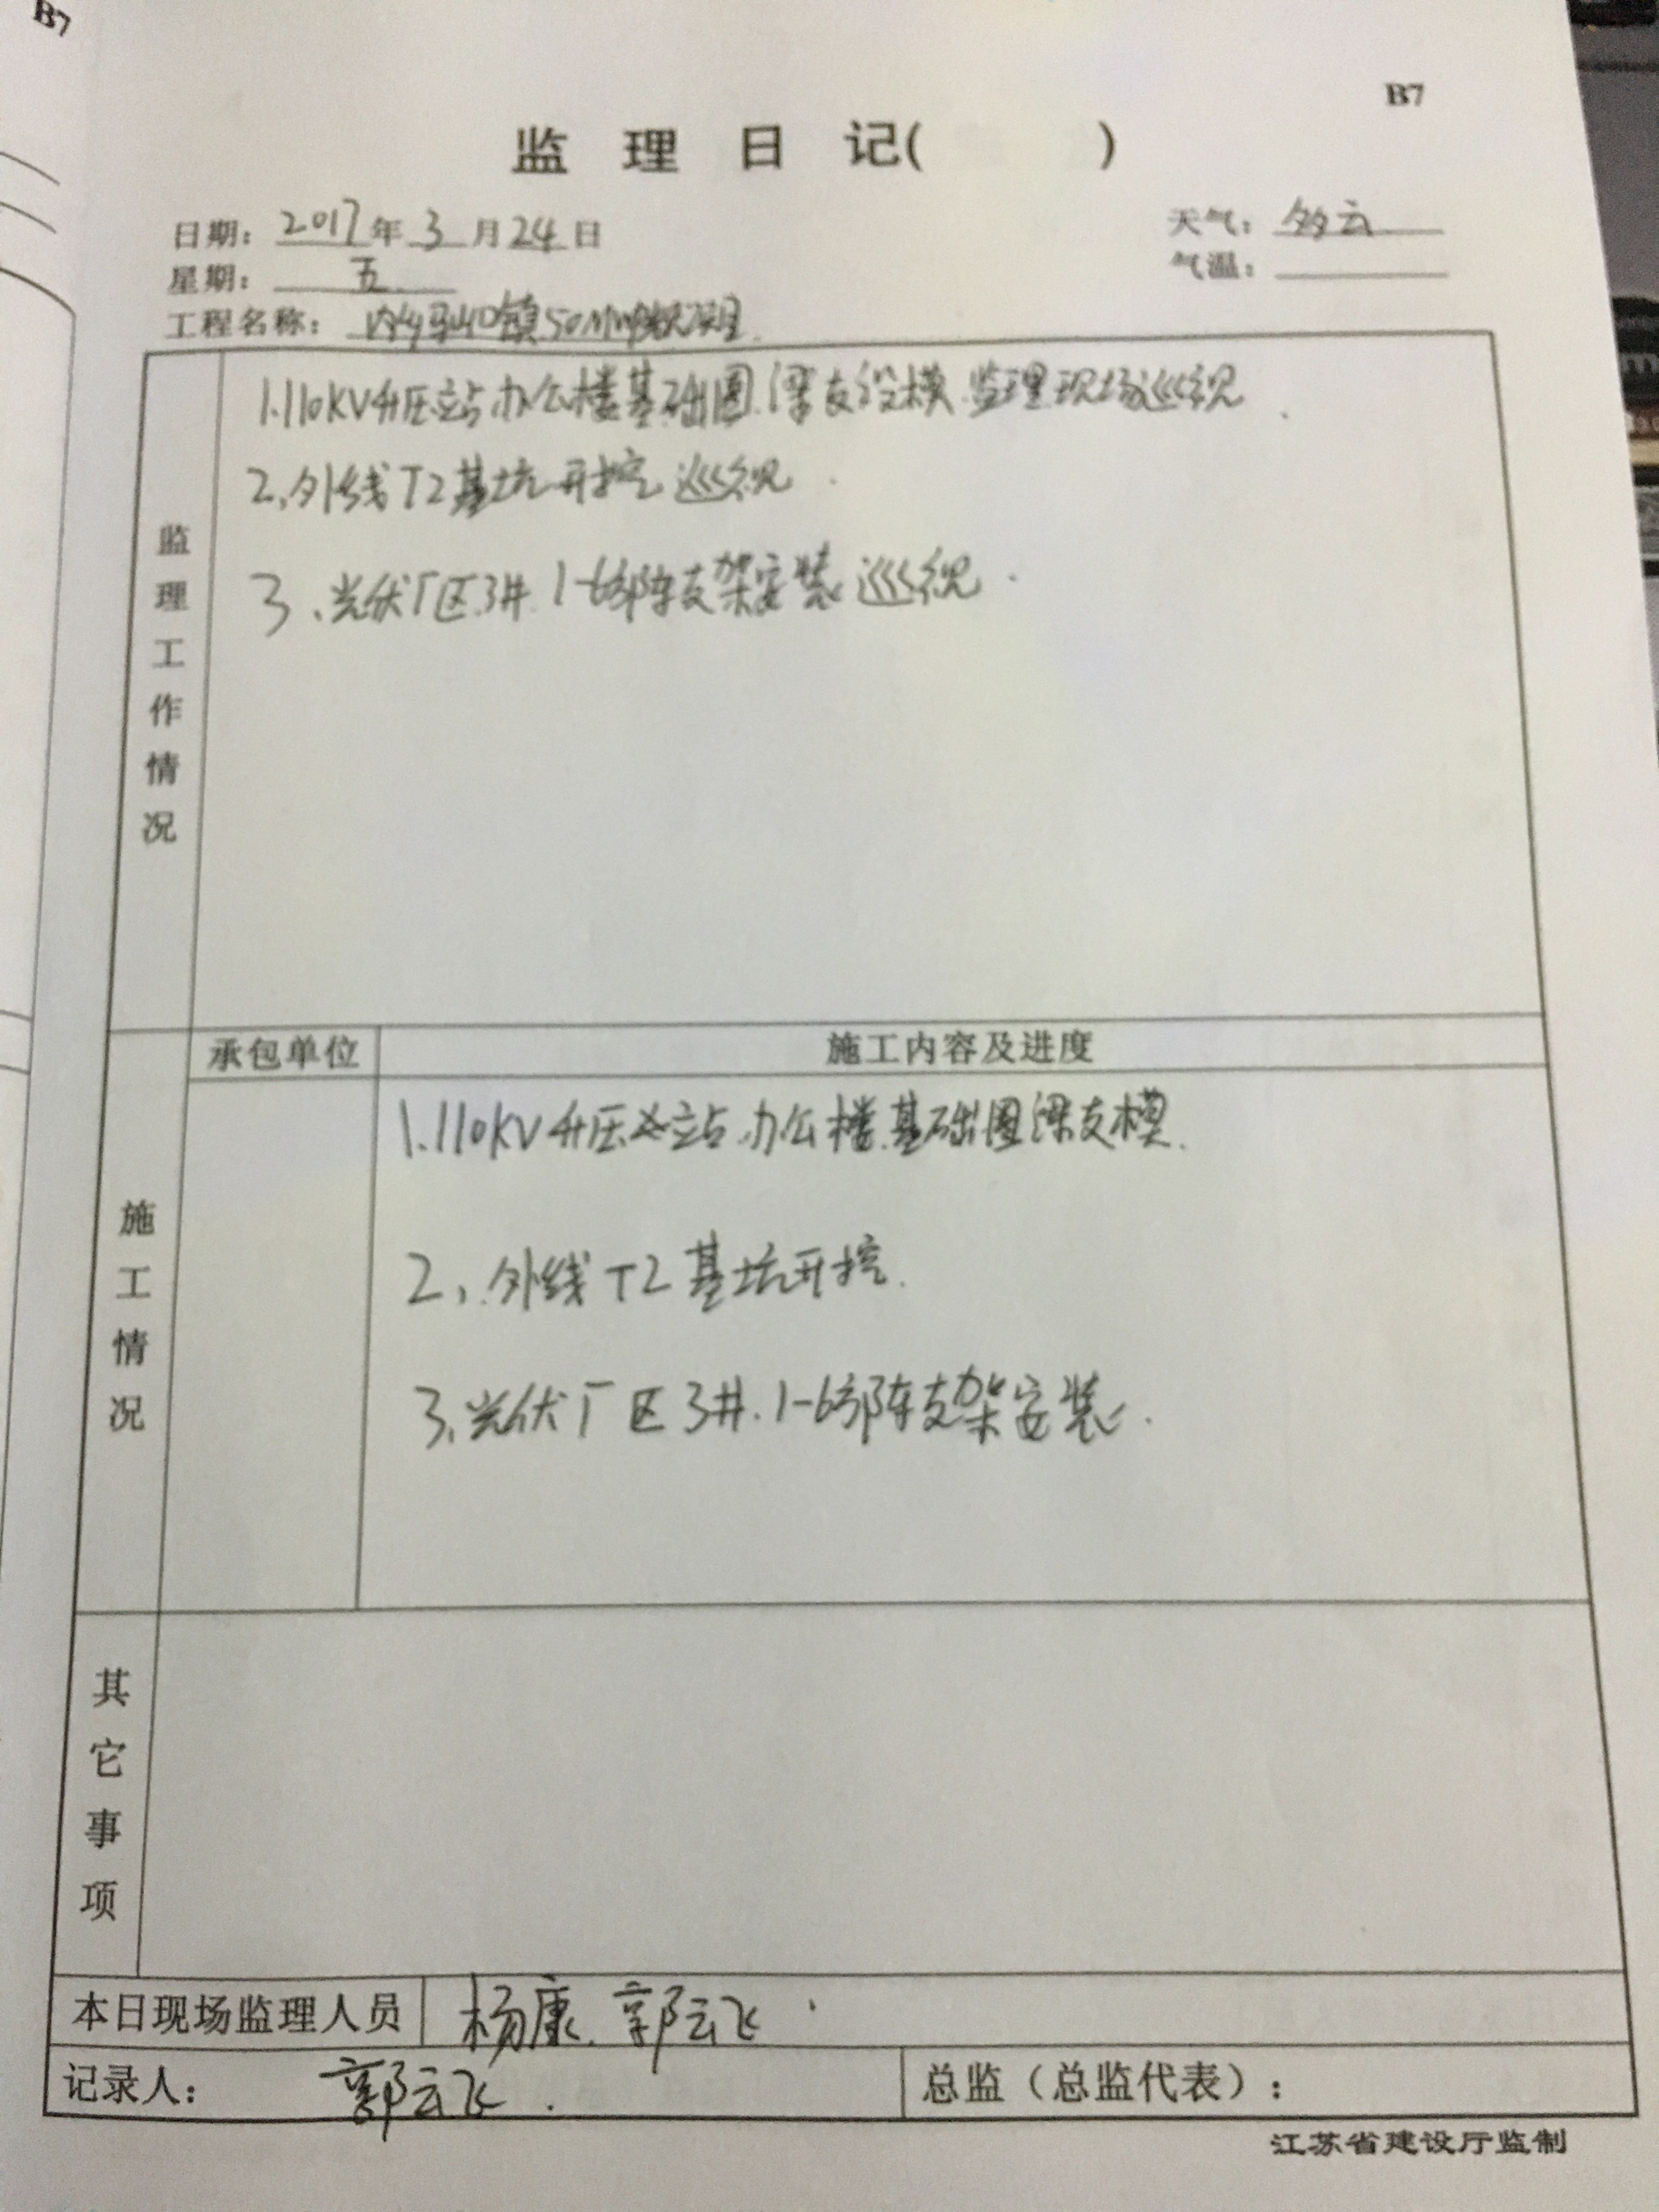 B7
B7
监理日记( )
日期: 2017年3月24日
天气: 多云
星期: 五
气温:
工程名称: 内乡马山口镇50MW光伏项目
监理工作情况
1.110KV升压站办公楼基础圈梁支设模.监理现场巡视.
2.外线T2基坑开挖巡视.
3.光伏厂区3#.1-6方阵支架安装巡视.
承包单位
施工内容及进度
施工情况
1.110KV升压站办公楼基础圈梁支模.
2,外线T2基坑开挖.
3.光伏厂区3#.1-6方阵支架安装.
其它事项
本日现场监理人员 杨康.郭云飞.
记录人: 郭云飞.
总监(总监代表):
江苏省建设厅监制